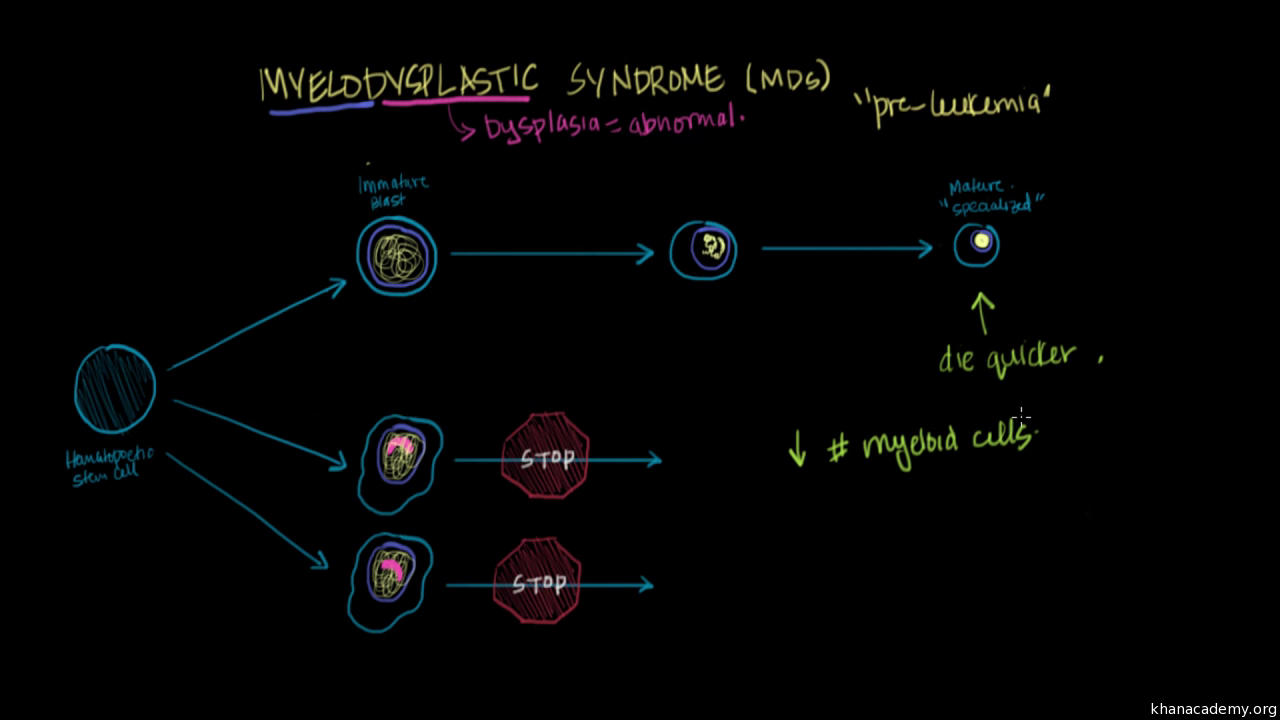 MYELODYSPLASTIC SYNDROME (MDS)
"pre-leukemia"
Dysplasia = abnormal.
Immature
Blast
Mature.
"specialized"
die quicker.
Hematopoetic
stem cell
STOP
↓ # myeloid cells.
STOP
khanacademy.org